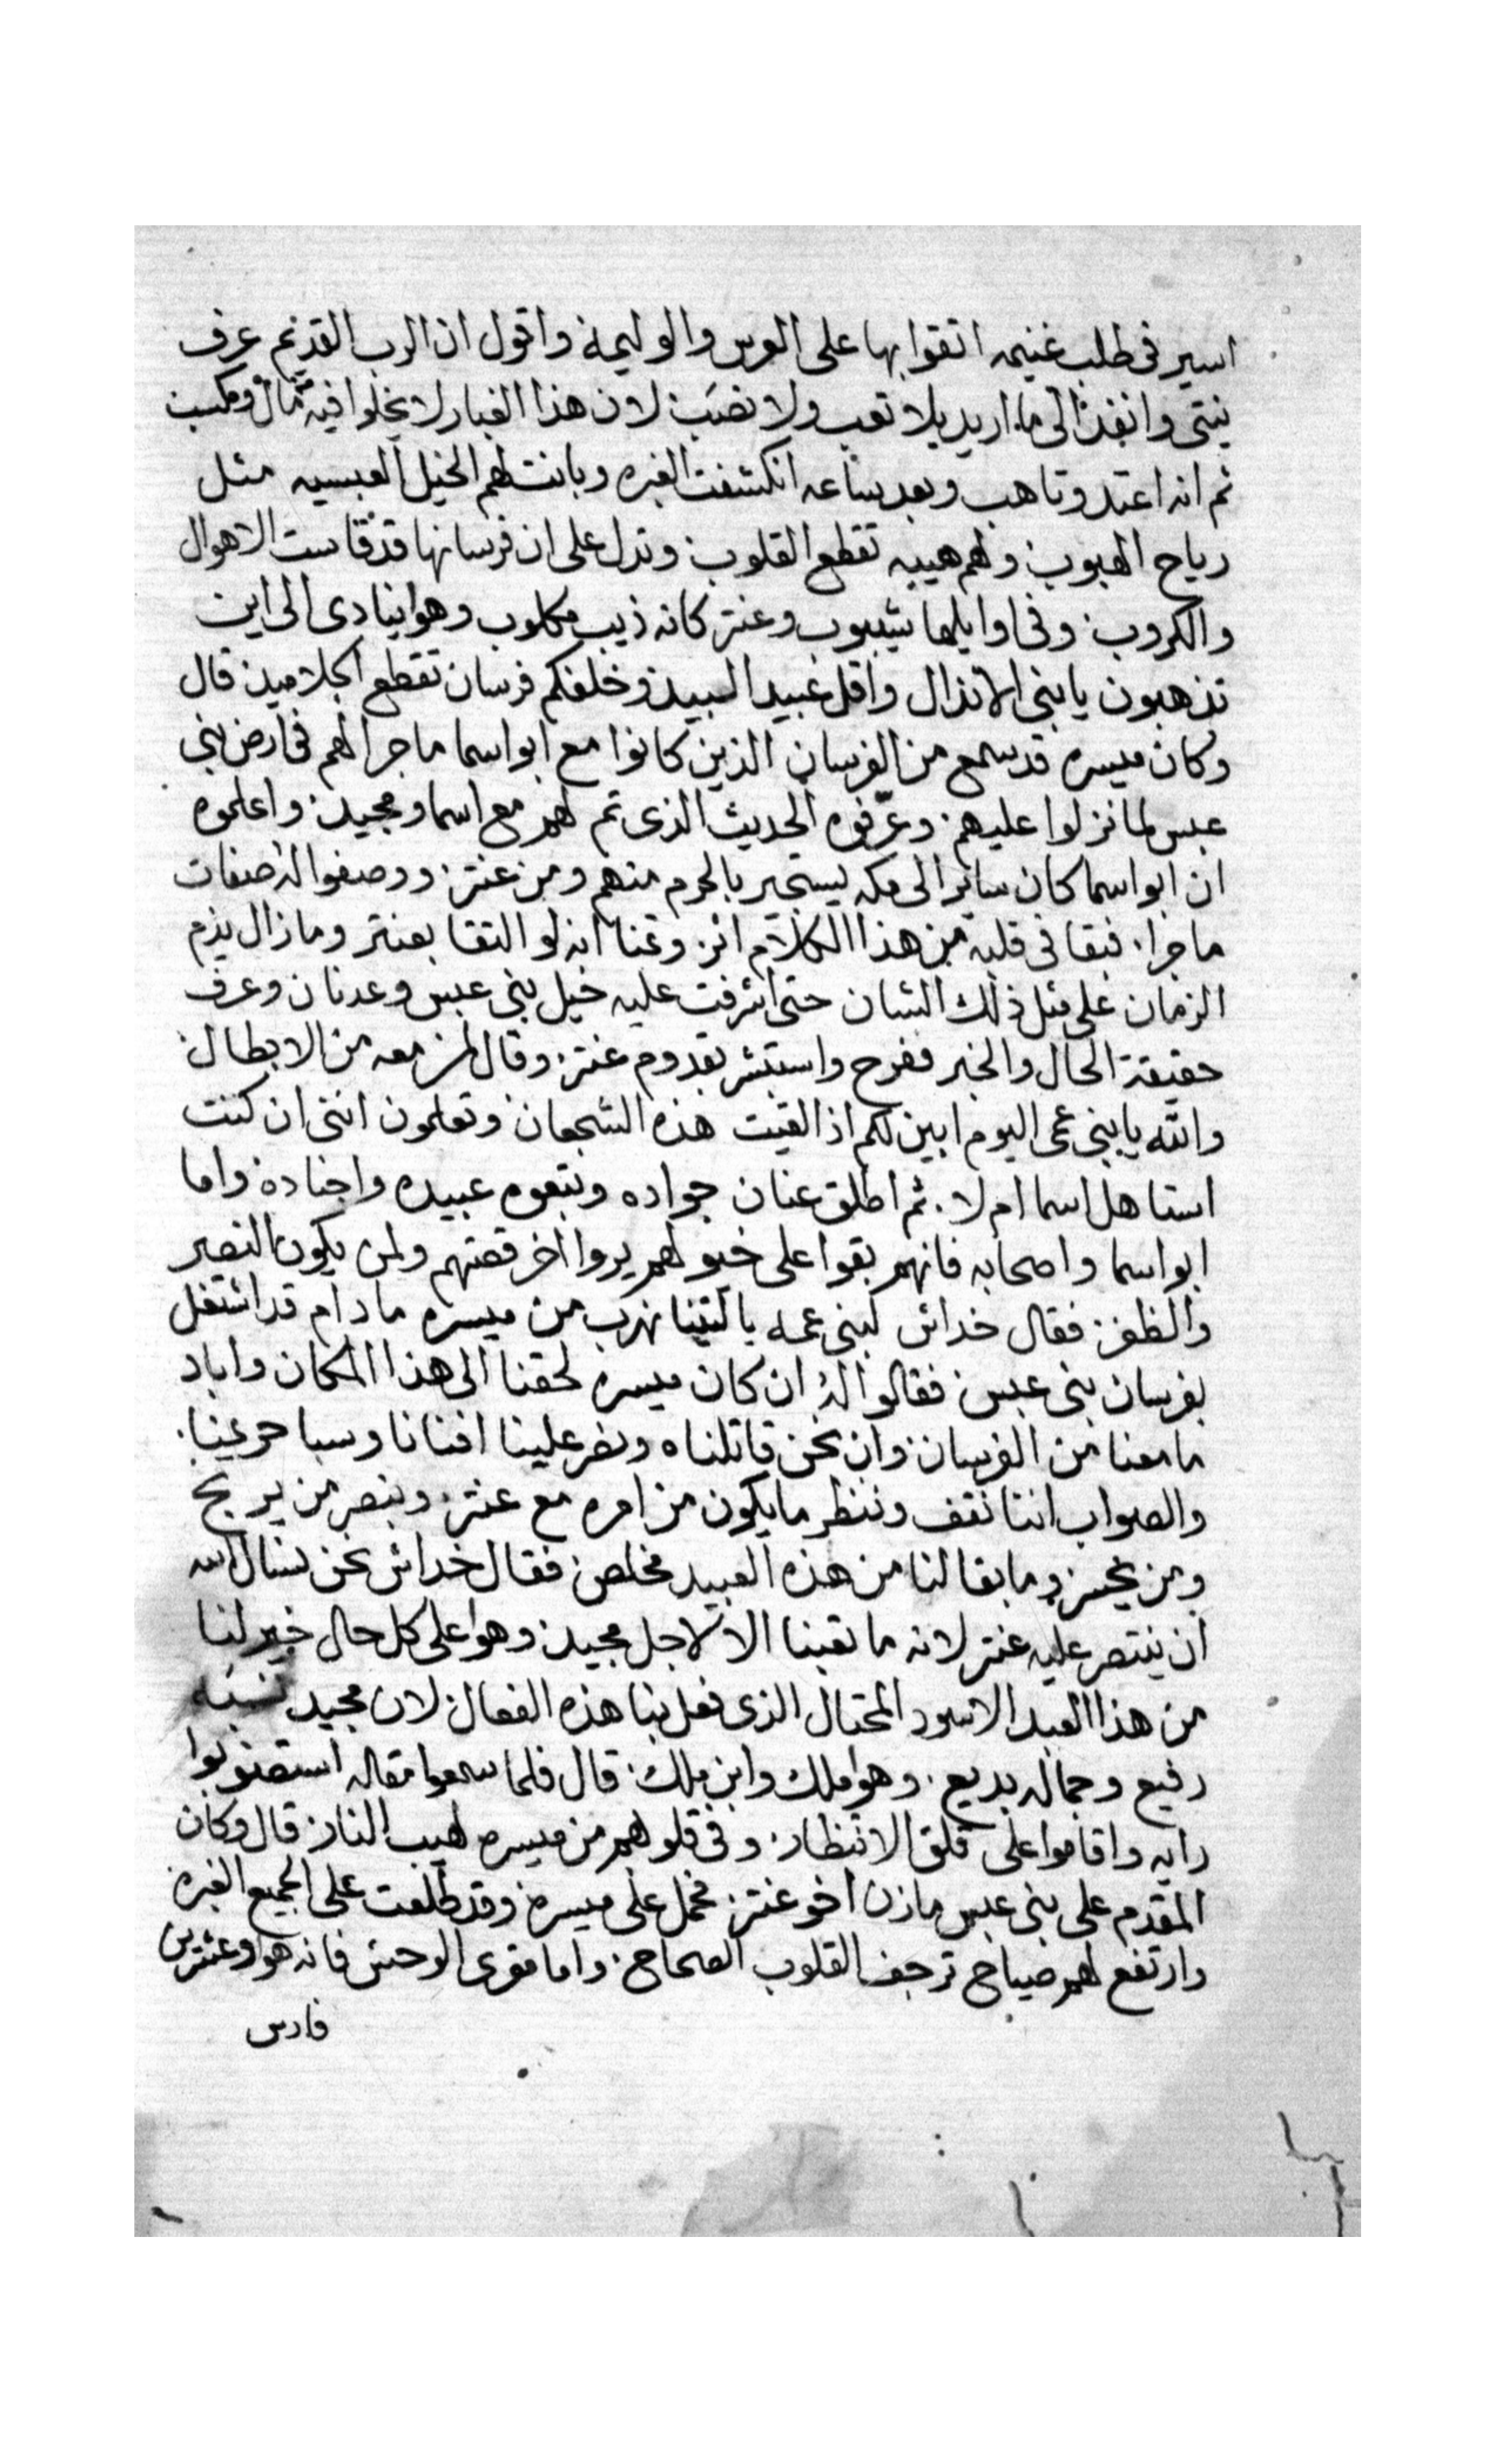 اسير فى طلب غنيمه اتقوا بها على العرس والوليمة واقول ان الرب القديم عرف
نيتى وانفذ الى ما اريد بلا تعب ولا نصب لان هذا الغبار لا يخلوا فيه مال ومكسب
ثم انه اعتد وتاهب وبعد ساعه انكشفت الغبره وبانت لهم الخيل العبسيه مثل
رياح الهبوب ولهم هيبه تقطع القلوب وتدل على ان فرسانها قد قاست الاهوال
والكروب وفى اوايلها شيبوب وعنتر كانه ذيب مكلوب وهوا ينادى الى اين
تذهبون يا بنى الانذال واقل عبيد البيد وخلفكم فرسان تقطع الجلاميد قال
وكان ميسره قد سمع من الفرسان الذين كانوا مع ابو اسما ما جرا لهم فى ارض بنى
عبس لما نزلوا عليهم وعرفوه الحديث الذى تم لهم مع اسما ومجيد واعلموه
ان ابو اسما كان ساير الى مكه ليستجير بالحرم منهم ومن عنتر ووصفوا له صفات
ما جرا فبقا فى قلبه من هذا الكلام اثر وتمنا انه لو التقا بعنتر وما زال يذم
الزمان على مثل ذلك الشان حتى اشرفت عليه خيل بنى عبس وعدنان وعرف
حقيقة الحال والخبر ففرح واستبشر بقدوم عنتر وقال لمن معه من الابطال
والله يا بنى عمى اليوم ابين لكم اذا لقيت هذه الشجعان وتعلمون اننى ان كنت
استاهل اسما ام لا ثم اطلق عنان جواده وتبعوه عبيده واجناده واما
ابو اسما واصحابه فانهم بقوا على خيولهم يروا اخر قصتهم ولمن يكون النصر
والظفر فقال خداش لبنى عمه يا ليتنا نهرب من ميسره ما دام قد اشتغل
بفرسان بنى عبس فقالوا له ان كان ميسره لحقنا الى هذا المكان واباد
ما معنا من الفرسان وان نحن قاتلناه ونصر علينا افنانا وسبا حريمنا
والصواب اننا نقف وننظر ما يكون من امره مع عنتر ونبصر من يربح
ومن يخسر وما بقا لنا من هذه العبيد مخلص فقال خداش نحن نسال الله
ان ينتصر عليه عنتر لانه ما تعبنا الا لاجل مجيد وهوا على كل حال خير لنا
من هذا العبد الاسود المحتال الذى فعل بنا هذه الفعال لان مجيد نسبه
رفيع وجماله بديع وهوا ملك وابن ملك قال فلما سمعوا مقاله استصوبوا
رايه واقاموا على قلق الانتظار وفى قلوبهم من ميسره لهيب النار قال وكان
المقدم على بنى عبس مازن اخو عنتر فحمل على ميسره وقد طلعت على الجميع الغبره
وارتفع لهم صياح ترجف القلوب الصحاح واما مقرى الوحش فانه هوا وعشرين
فارس